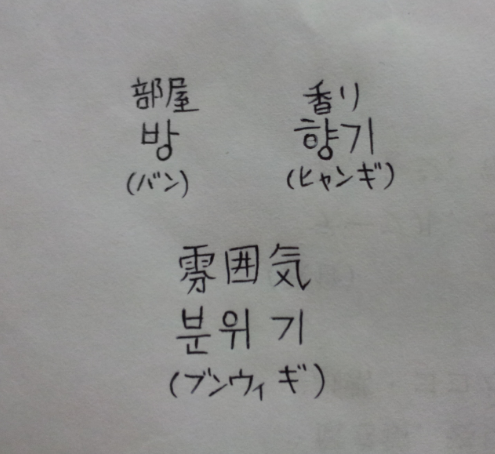 部屋 香り
방 향기
(バン) (ヒャンギ)
雰囲気
분위기
(ブンウィギ)